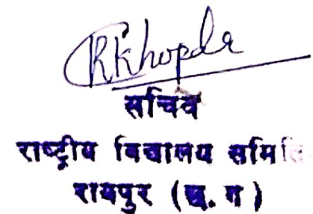 RKhopde
सचिव
राष्ट्रीय विद्यालय समिति
रायपुर (छ. ग)